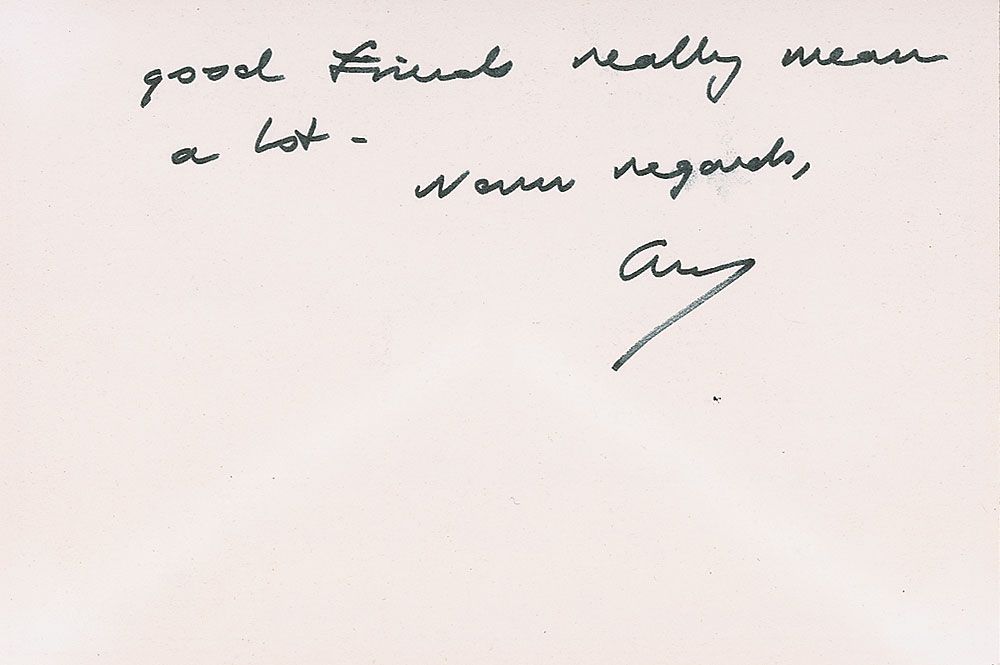 good Friends really mean
a lot -
Warm regards,